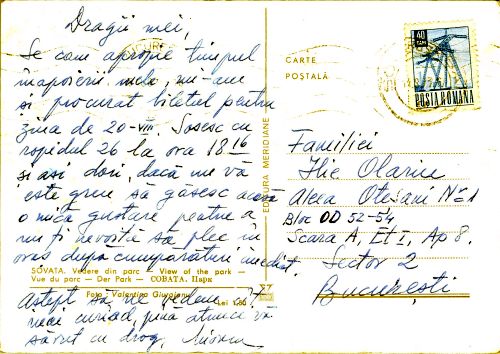 Dragii mei,
Se cam apropie timpul
înapoierii mele, mi-am
și procurat biletul pentru
ziua de 20-VIII. Sosesc cu
rapidul 26 la ora 18 16
și aș dori, dacă nu vă
este greu să găsesc acasă
o mică gustare pentru a
nu fi nevoită să plec în
oraș după cumpărături imediat.
Aștept să ne vedem
mai curând, până atunci vă
sărut cu drag,
SOVATA. Vedere din parc — View of the park —
Vue du parc — Der Park — СОВАТА. Парк
Foto: Valentina
Lei 1,50
EDITURA MERIDIANE
CARTE
POȘTALĂ
40
BANI
POSTA ROMANA
Familiei
Ilie Olariu
Aleea Otesani Nº 1
Bloc OD 52-54
Scara A, Et I, Ap 8.
Sector 2
București